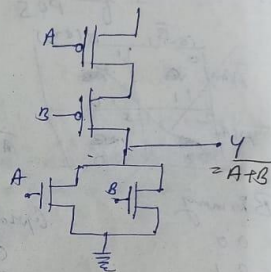 A
B
Y
= \overline{A+B}
A
B